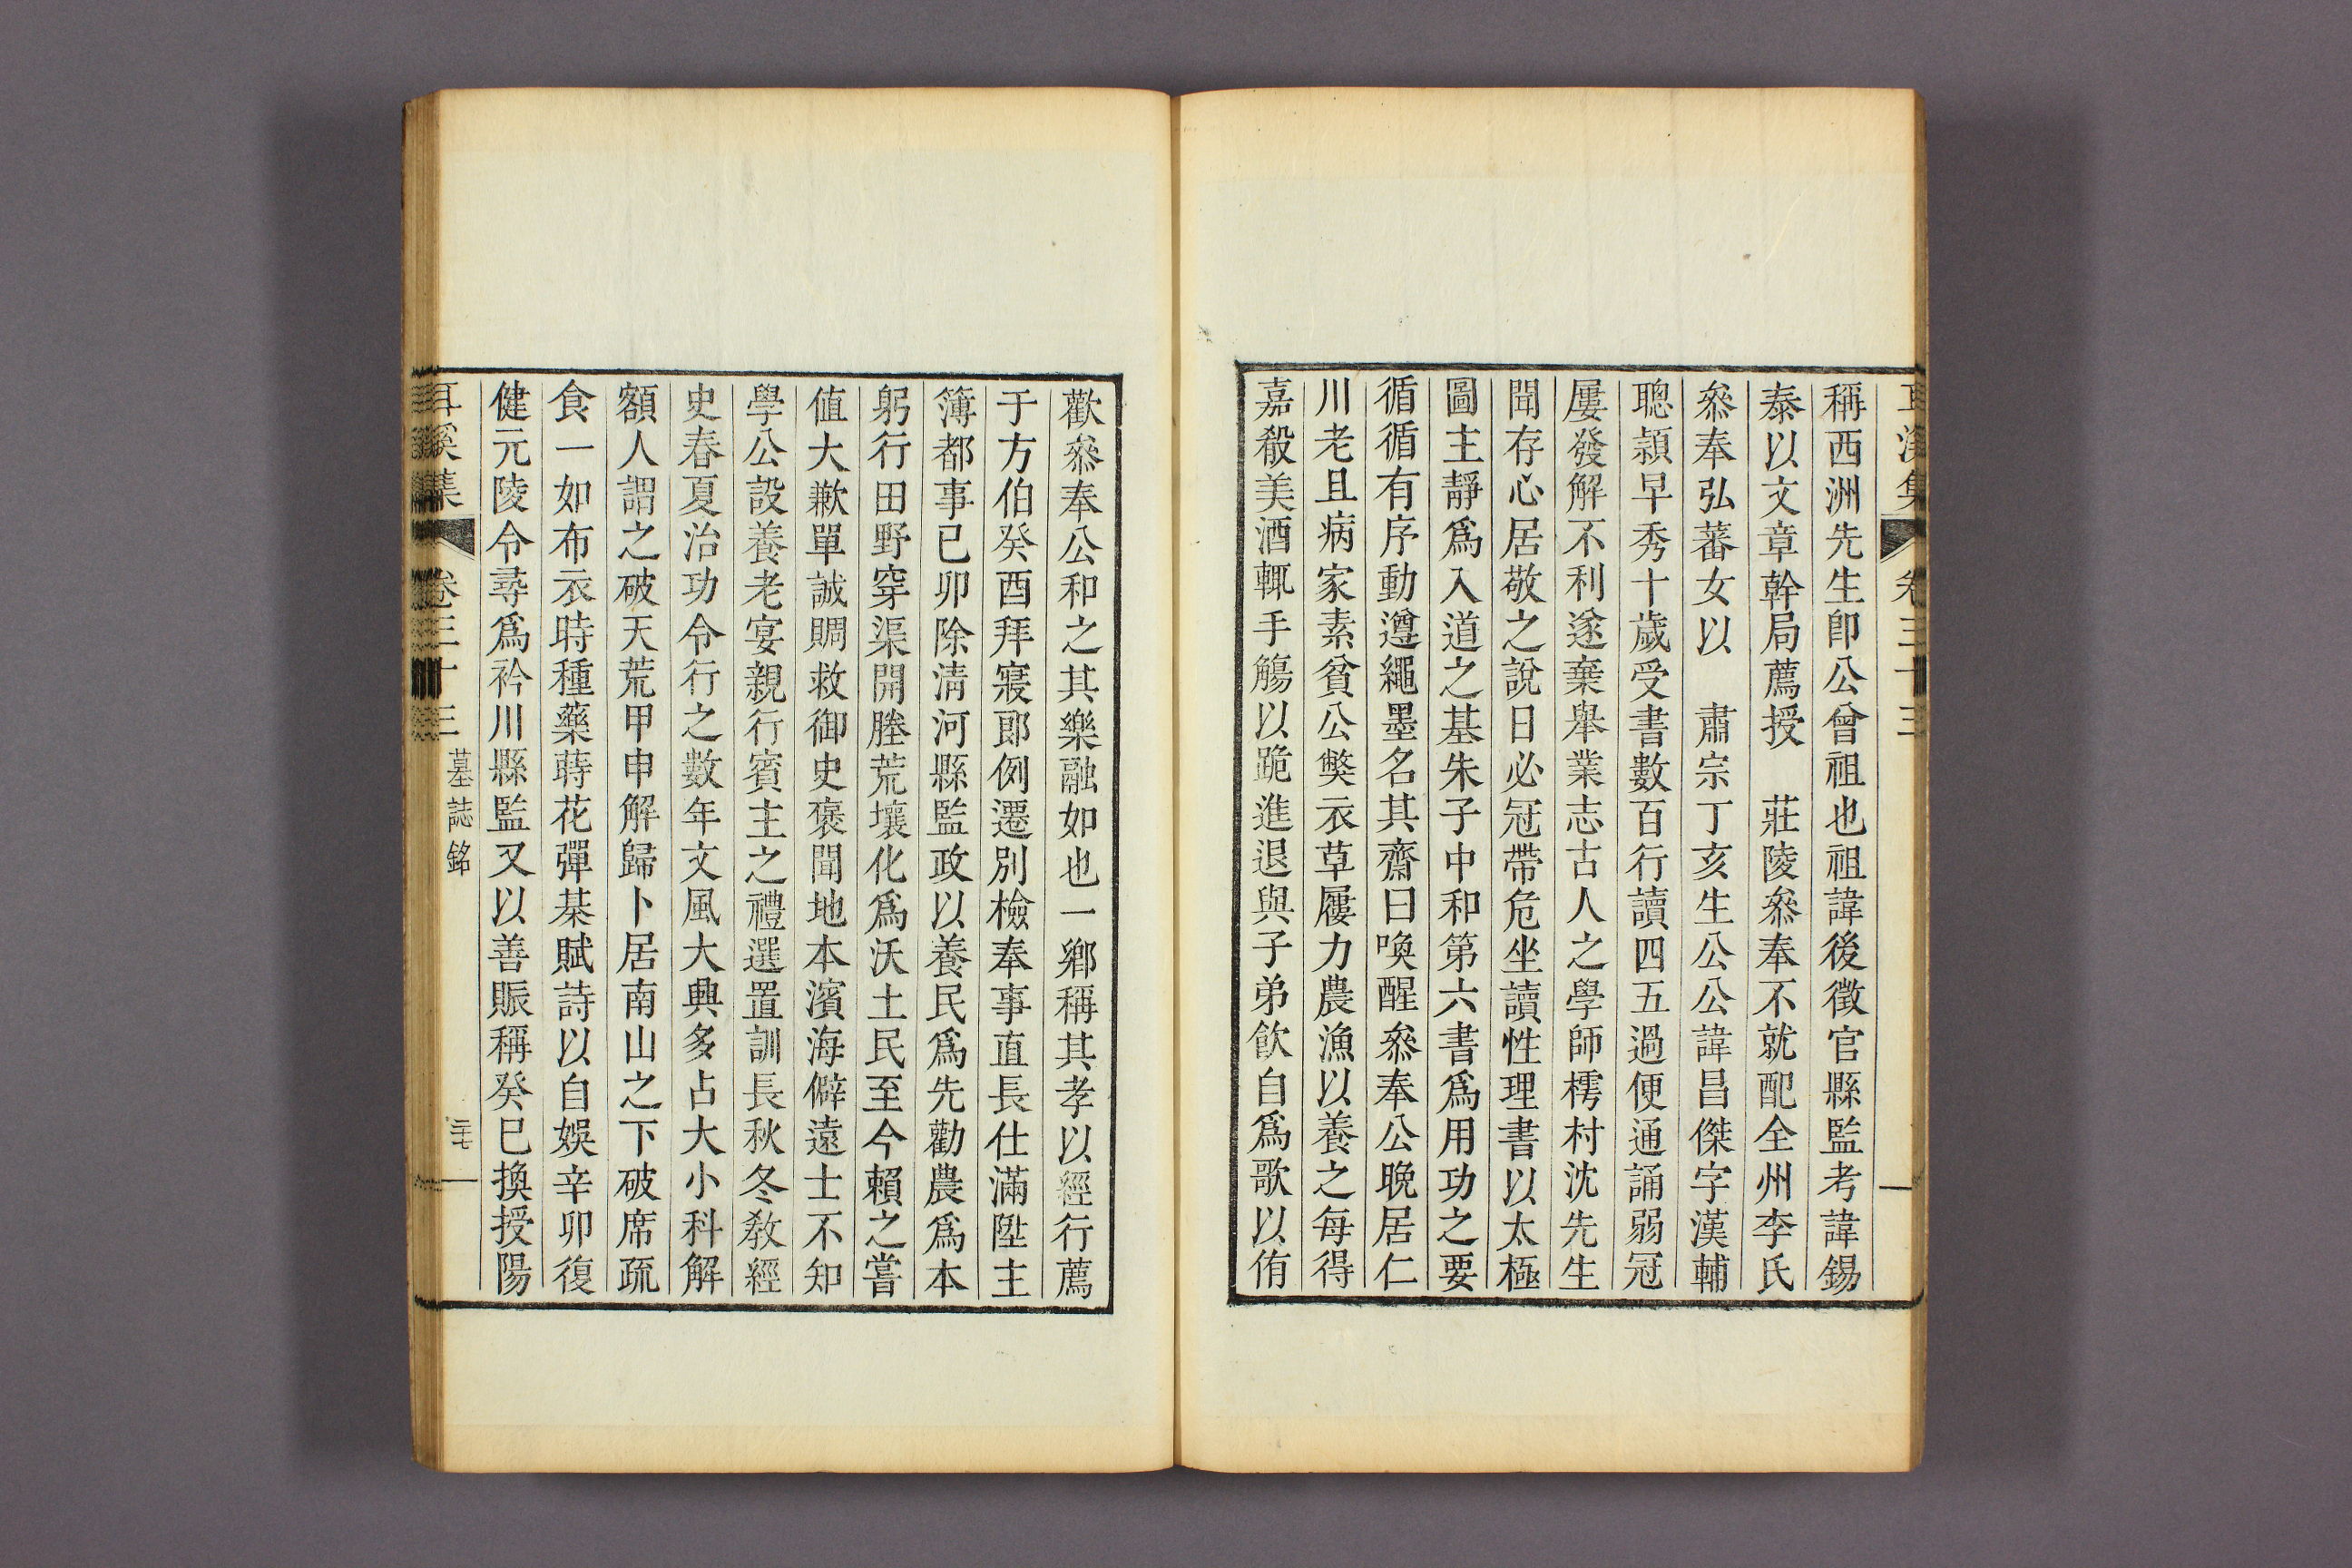 稱西洲先生卽公曾祖也祖諱後徵官縣監考諱錫
泰以文章幹局薦授　莊陵叅奉不就配全州李氏
叅奉弘蕃女以　肅宗丁亥生公公諱昌傑字漢輔
聰頴早秀十歲受書數百行讀四五過便通誦弱冠
屢發解不利遂棄舉業志古人之學師樗村沈先生
聞存心居敬之說日必冠帶危坐讀性理書以太極
圖主靜爲入道之基朱子中和第六書爲用功之要
循循有序動遵繩墨名其齋曰喚醒叅奉公晚居仁
川老且病家素貧公獘衣草屨力農漁以養之每得
嘉殽美酒輒手觴以跪進退與子弟飮自爲歌以侑
歡叅奉公和之其樂融如也一鄕稱其孝以經行薦
于方伯癸酉拜寢郞例遷別檢奉事直長仕滿陞主
簿都事己卯除淸河縣監政以養民爲先勸農爲本
躬行田野穿渠開塍荒壤化爲沃土民至今賴之嘗
値大歉單誠賙救御史褒聞地本濱海僻遠士不知
學公設養老宴親行賓主之禮選置訓長秋冬教經
史春夏治功令行之數年文風大興多占大小科解
額人謂之破天荒甲申解歸卜居南山之下破席疏
食一如布衣時種藥蒔花彈棊賦詩以自娛辛卯復
健元陵令尋爲衿川縣監又以善賑稱癸巳換授陽
耳溪集　卷三十三　墓誌銘　二十七